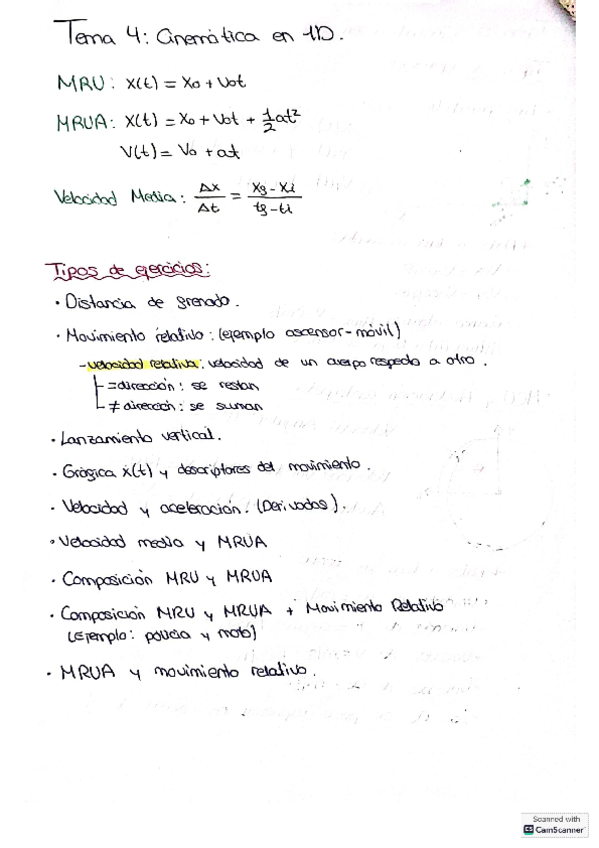 Tema 4: Cinemática en 1D.
MRU: x(t) = x₀ + v₀t
MRUA: x(t) = x₀ + v₀t + 1/2 at²
V(t) = V₀ + at
Velocidad Media: Δx/Δt = (xf - xi)/(tf - ti)
Tipos de ejercicios:
· Distancia de frenado.
· Movimiento relativo: (ejemplo ascensor-móvil)
- velocidad relativa: velocidad de un cuerpo respecto a otro.
= dirección: se restan
≠ dirección: se suman
· Lanzamiento vertical.
· Gráfica x(t) y descriptores del movimiento.
· Velocidad y aceleración. (Derivadas).
· Velocidad media y MRUA
· Composición MRU y MRUA
· Composición MRU y MRUA + Movimiento Relativo
(Ejemplo: policia y moto)
· MRUA y movimiento relativo.
Scanned with
CS CamScanner